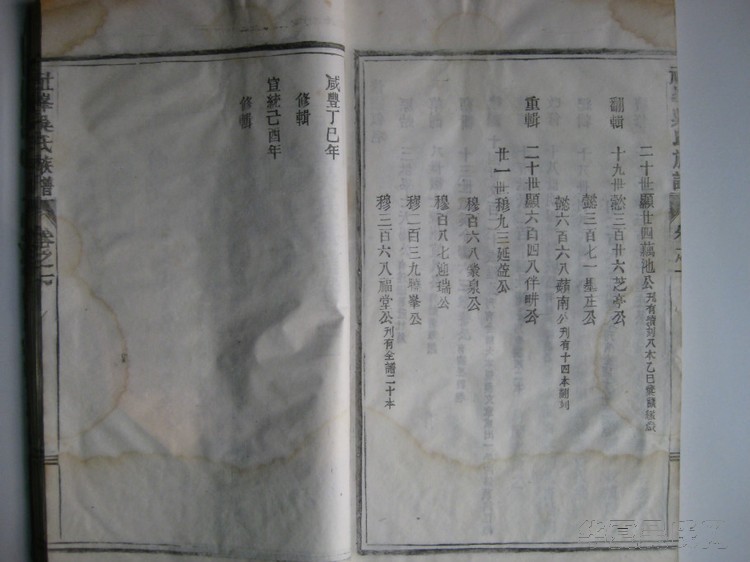 二十世顯廿四藕池公刋有
翻輯
十九世懿三百廿六芝亭公
懿三百七一星正公
懿六百六八蘋南公刋有十四本
重輯
二十世顯六百四八伴畊公
廿一世穆九三延益公
穆百六八泉公
穆百八七迎瑞公
穆二百三九勝峯公
穆三百六八福堂公刋有全譜二十本
咸豐丁巳年
修輯
宣統己酉年
修輯
吳氏族譜 卷之一